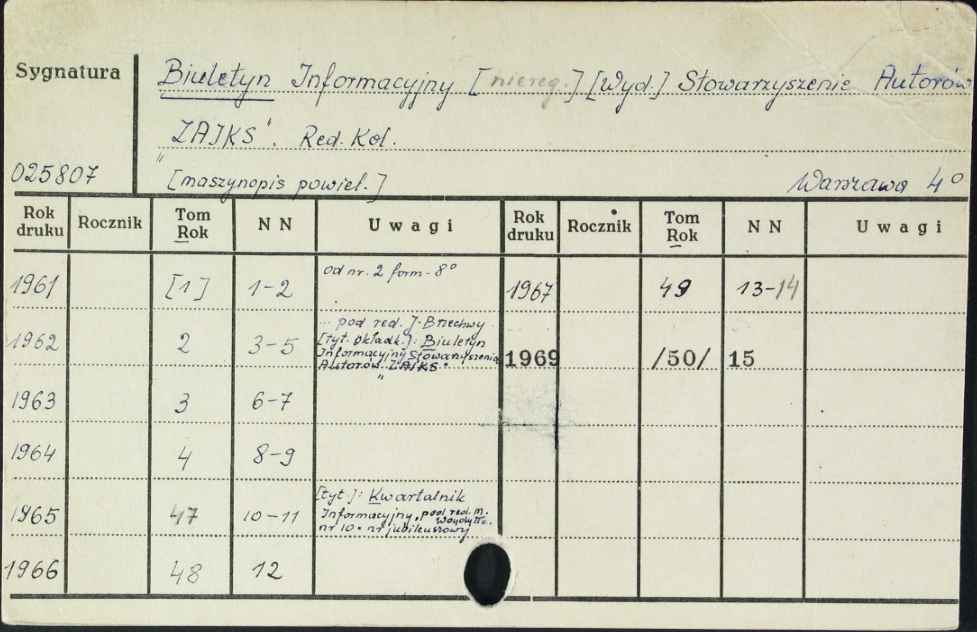 Sygnatura
Biuletyn Informacyjny [niereg.] [Wyd.] Stowarzyszenie Autorów
"ZAIKS". Red. Kol.
025807
[maszynopis powiel.] Warszawa 4°
Rok druku Rocznik Tom Rok N N Uwagi Rok druku Rocznik Tom Rok N N Uwagi
1961 [1] 1-2 od nr. 2 form. 8° 1967 49 13-14
1962 2 3-5 ... pod red. J. Brzechwy
[tyt. okładk.]: Biuletyn
Informacyjny Stowarzyszenia
Autorów "ZAIKS"
1969 /50/ 15
1963 3 6-7
1964 4 8-9
1965 47 10-11 [tyt.]: Kwartalnik
Informacyjny, pod red. M.
nr 10 - nr jubileuszowy
1966 48 12